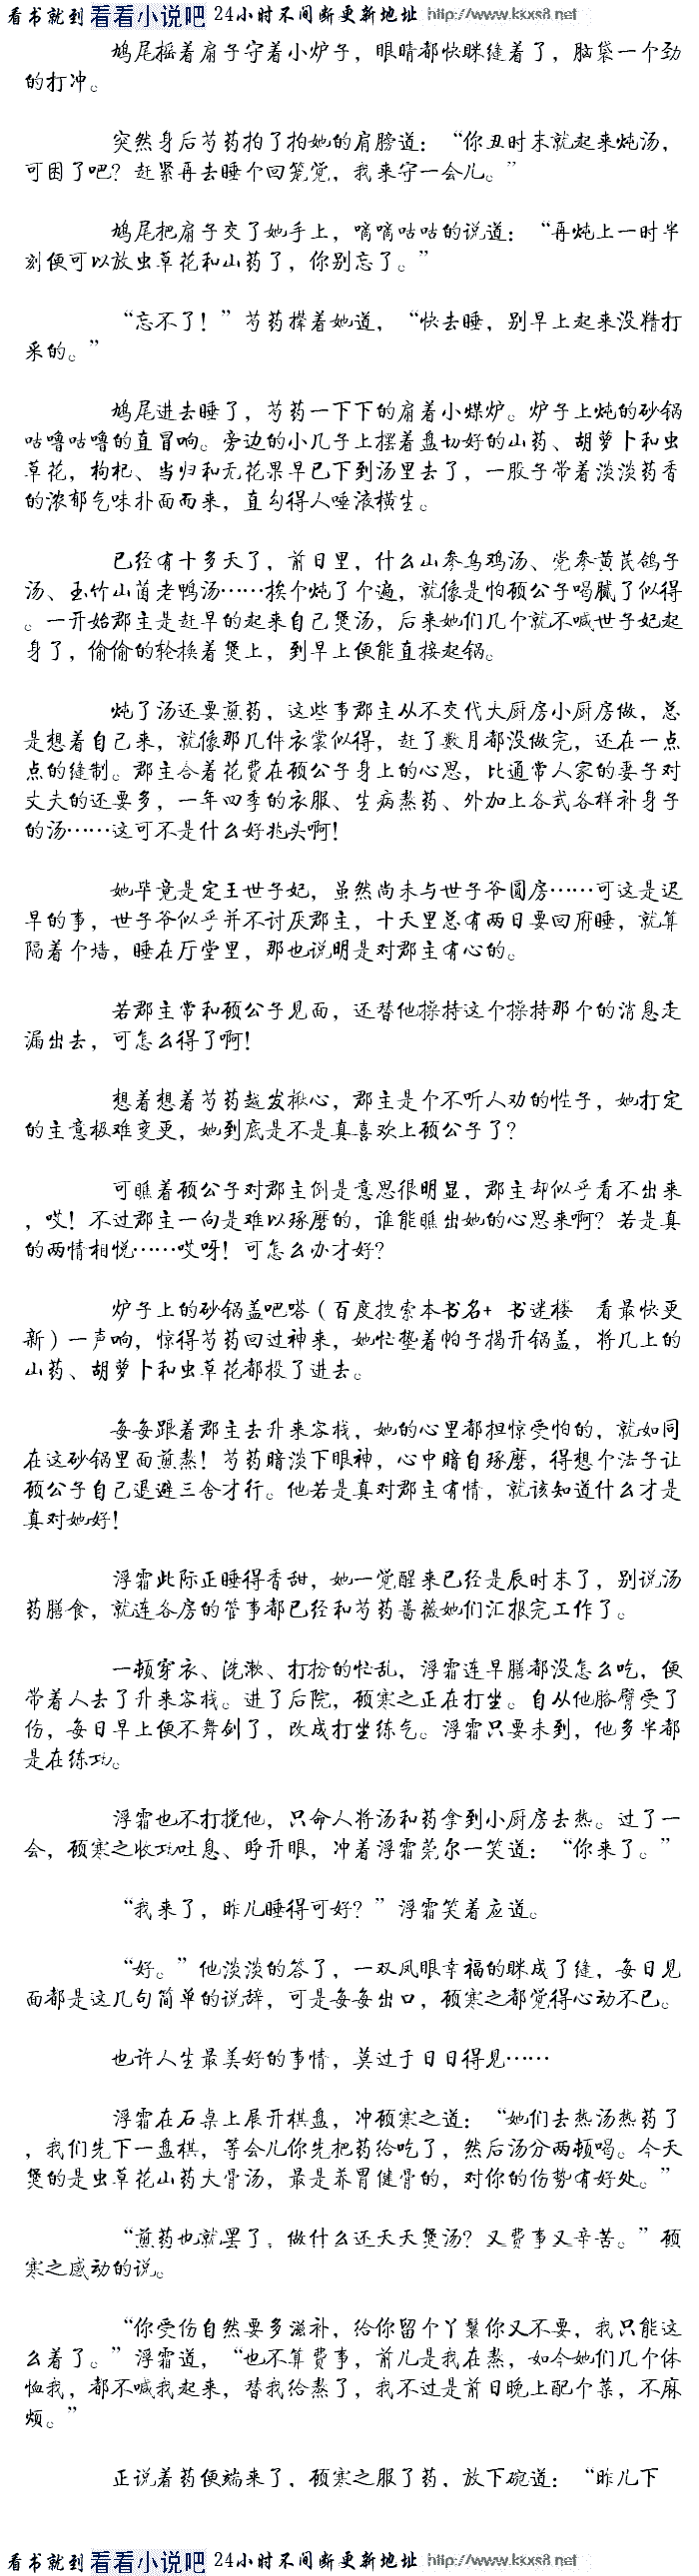 看书就到 看看小说吧 24小时不间断更新地址 http://www.kxxs8.net
鸠尾摇着扇子守着小炉子，眼睛都快眯缝着了，脑袋一个劲
的打冲。
突然身后芍药拍了拍她的肩膀道：“你丑时末就起来炖汤，
可困了吧？赶紧再去睡个回笼觉，我来守一会儿。”
鸠尾把扇子交了她手上，嘀嘀咕咕的说道：“再炖上一时半
刻便可以放虫草花和山药了，你别忘了。”
“忘不了！”芍药撵着她道，“快去睡，别早上起来没精打
采的。”
鸠尾进去睡了，芍药一下下的扇着小煤炉。炉子上炖的砂锅
咕噜咕噜的直冒响。旁边的小几子上摆着盘切好的山药、胡萝卜和虫
草花，枸杞、当归和无花果早已下到汤里去了，一股子带着淡淡药香
的浓郁气味扑面而来，直勾得人唾液横生。
已经有十多天了，前日里，什么山参乌鸡汤、党参黄芪鸽子
汤、玉竹山菌老鸭汤……挨个炖了个遍，就像是怕顾公子喝腻了似得
。一开始郡主是赶早的起来自己煲汤，后来她们几个就不喊世子妃起
身了，偷偷的轮换着煲上，到早上便能直接起锅。
炖了汤还要煎药，这些事郡主从不交代大厨房小厨房做，总
是想着自己来，就像那几件衣裳似得，赶了数月都没做完，还在一点
点的缝制。郡主合着花费在顾公子身上的心思，比通常人家的妻子对
丈夫的还要多，一年四季的衣服、生病熬药、外加上各式各样补身子
的汤……这可不是什么好兆头啊！
她毕竟是定王世子妃，虽然尚未与世子爷圆房……可这是迟
早的事，世子爷似乎并不讨厌郡主，十天里总有两日要回府睡，就算
隔着个墙，睡在厅堂里，那也说明是对郡主有心的。
若郡主常和顾公子见面，还替他操持这个操持那个的消息走
漏出去，可怎么得了啊！
想着想着芍药越发揪心，郡主是个不听人劝的性子，她打定
的主意极难变更，她到底是不是真喜欢上顾公子了？
可瞧着顾公子对郡主倒是意思很明显，郡主却似乎看不出来
，哎！不过郡主一向是难以琢磨的，谁能瞧出她的心思来啊？若是真
的两情相悦……哎呀！可怎么办才好？
炉子上的砂锅盖吧嗒（百度搜索本书名+ 书迷楼 看最快更
新）一声响，惊得芍药回过神来，她忙垫着帕子揭开锅盖，将几上的
山药、胡萝卜和虫草花都投了进去。
每每跟着郡主去升来客栈，她的心里都担惊受怕的，就如同
在这砂锅里面煎熬！芍药暗淡下眼神，心中暗自琢磨，得想个法子让
顾公子自己退避三舍才行。他若是真对郡主有情，就该知道什么才是
真对她好！
浮霜此际正睡得香甜，她一觉醒来已经是辰时末了，别说汤
药膳食，就连各房的管事都已经和芍药蔷薇她们汇报完工作了。
一顿穿衣、洗漱、打扮的忙乱，浮霜连早膳都没怎么吃，便
带着人去了升来客栈。进了后院，顾寒之正在打坐。自从他胳臂受了
伤，每日早上便不舞剑了，改成打坐练气。浮霜只要未到，他多半都
是在练功。
浮霜也不打搅他，只命人将汤和药拿到小厨房去热。过了一
会，顾寒之收功吐息、睁开眼，冲着浮霜莞尔一笑道：“你来了。”
“我来了，昨儿睡得可好？”浮霜笑着应道。
“好。”他淡淡的答了，一双凤眼幸福的眯成了缝，每日见
面都是这几句简单的说辞，可是每每出口，顾寒之都觉得心动不已。
也许人生最美好的事情，莫过于日日得见……
浮霜在石桌上展开棋盘，冲顾寒之道：“她们去热汤热药了
，我们先下一盘棋，等会儿你先把药给吃了，然后汤分两顿喝。今天
煲的是虫草花山药大骨汤，最是养胃健骨的，对你的伤势有好处。”
“煎药也就罢了，做什么还天天煲汤？又费事又辛苦。”顾
寒之感动的说。
“你受伤自然要多滋补，给你留个丫鬟你又不要，我只能这
么着了。”浮霜道，“也不算费事，前儿是我在熬，如今她们几个体
恤我，都不喊我起来，替我给熬了，我不过是前日晚上配个菜，不麻
烦。”
正说着药便端来了，顾寒之服了药，放下碗道：“昨儿下
看书就到 看看小说吧 24小时不间断更新地址 http://www.kxxs8.net